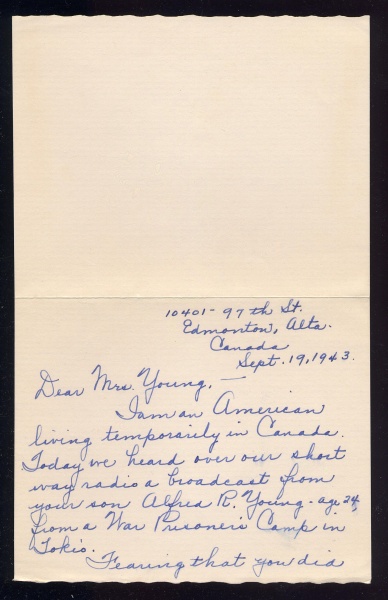 10401- 97th St.
Edmonton, Alta.
Canada
Sept. 19, 1943.
Dear Mrs. Young, —
I am an American
living temporarily in Canada.
Today we heard over our short
way radio a broadcast from
your son Alfred R. Young - age 24,
from a War Prisoners Camp in
Tokio.
Fearing that you did